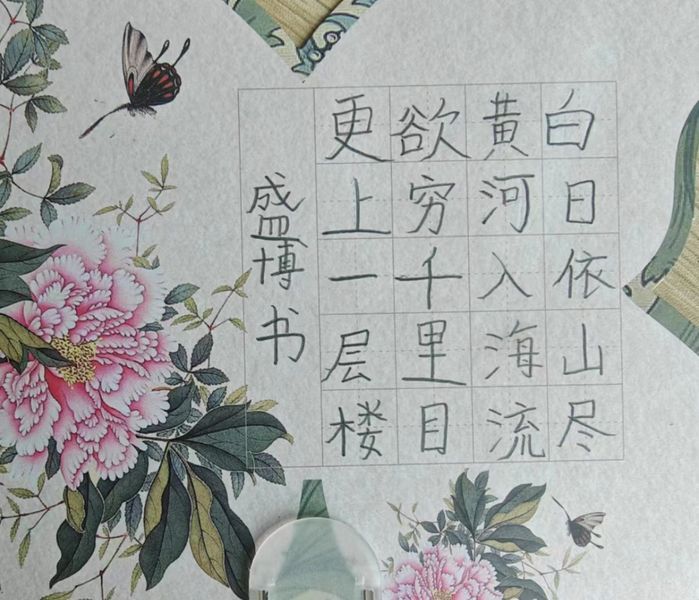 白日依山尽
黄河入海流
欲穷千里目
更上一层楼
盛博书